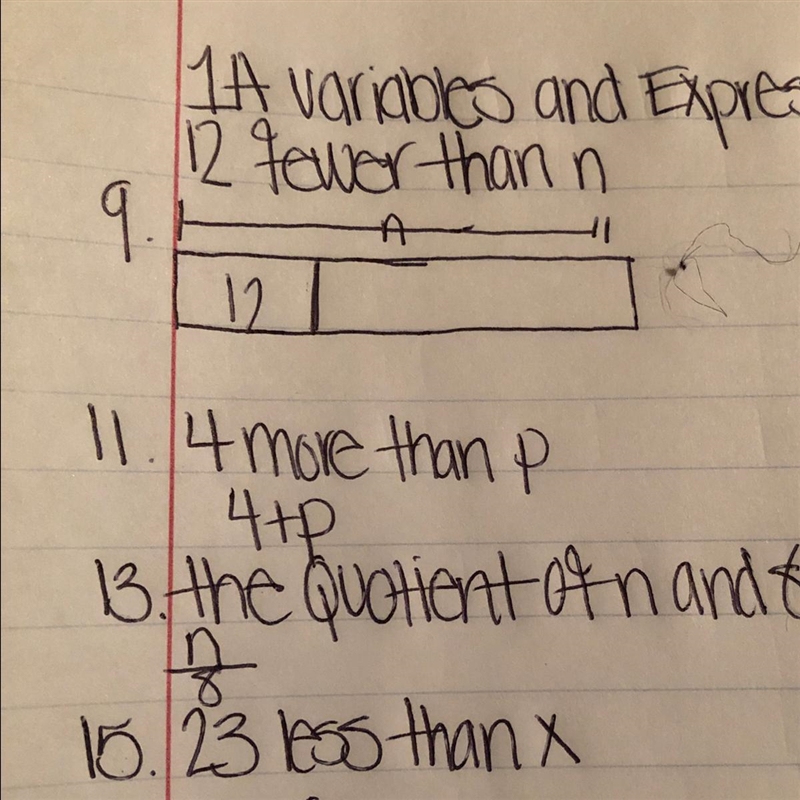 1A Variables and Expres
12 fewer than n
9.
n
12
11. 4 more than p
4+p
13. the Quotient of n and 8
n
8
15. 23 less than x